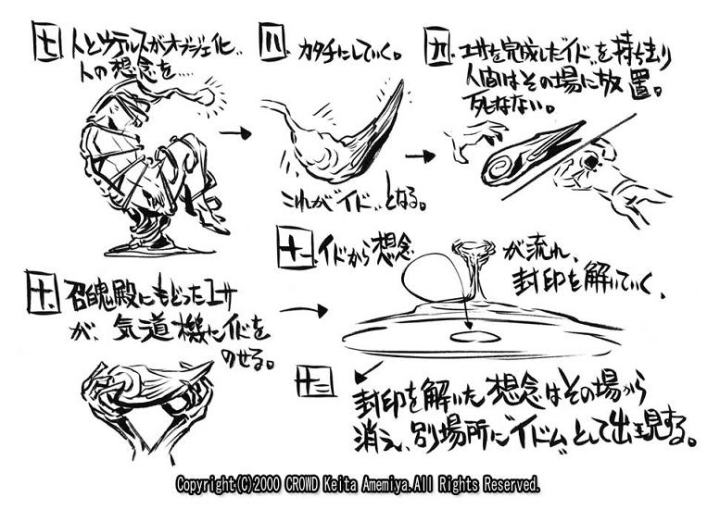 七 人とウテルスがオブジェ化
人の想念を…
八 カタチにしていく。
これが"イド"となる。
九 ユサを完成した"イド"を持ち去り
人間はその場に放置。
死なない。
十、召魂殿にもどったユサ
が、気道機にイドを
のせる。
十一 イドから想念が流れ、
封印を解いていく、
十二
封印を解いた想念はその場から
消え、別場所に"イドム"として出現する。
Copyright(C)2000 CROWD Keita Amemiya.All Rights Reserved.